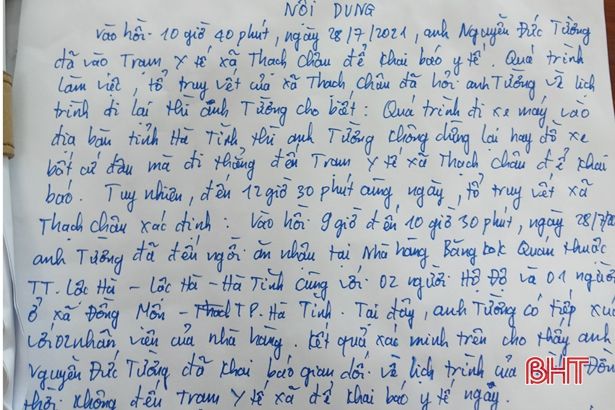 NỘI DUNG
Vào hồi 10 giờ 40 phút, ngày 28/7/2021, anh Nguyễn Đức Tường
đã vào Trạm Y tế xã Thạch Châu để khai báo y tế. Quá trình
làm việc, tổ truy vết của xã Thạch Châu đã hỏi anh Tường về lịch
trình đi lại thì anh Tường cho biết: Quá trình đi xe máy vào
địa bàn tỉnh Hà Tĩnh thì anh Tường không dừng lại hay đỗ xe
bất cứ đâu mà đi thẳng đến Trạm Y tế xã Thạch Châu để khai
báo. Tuy nhiên, đến 12 giờ 30 phút cùng ngày, tổ truy vết xã
Thạch Châu xác định: Vào hồi 9 giờ đến 10 giờ 30 phút, ngày 28/7
anh Tường đã đến ngồi ăn nhậu tại Nhà hàng Băng kok Quán thuộc
TT. Lộc Hà - Lộc Hà - Hà Tĩnh cùng với 02 người Hộ Độ và 01 người
ở xã Đồng Môn - TP. Hà Tĩnh. Tại đây, anh Tường có tiếp xú
với 02 nhân viên của nhà hàng. Kết quả xác minh trên cho thấy anh
Nguyễn Đức Tường đã khai báo gian dối về lịch trình của Đồn
thời không đến Trạm Y tế xã để khai báo y tế ngay.
BHT